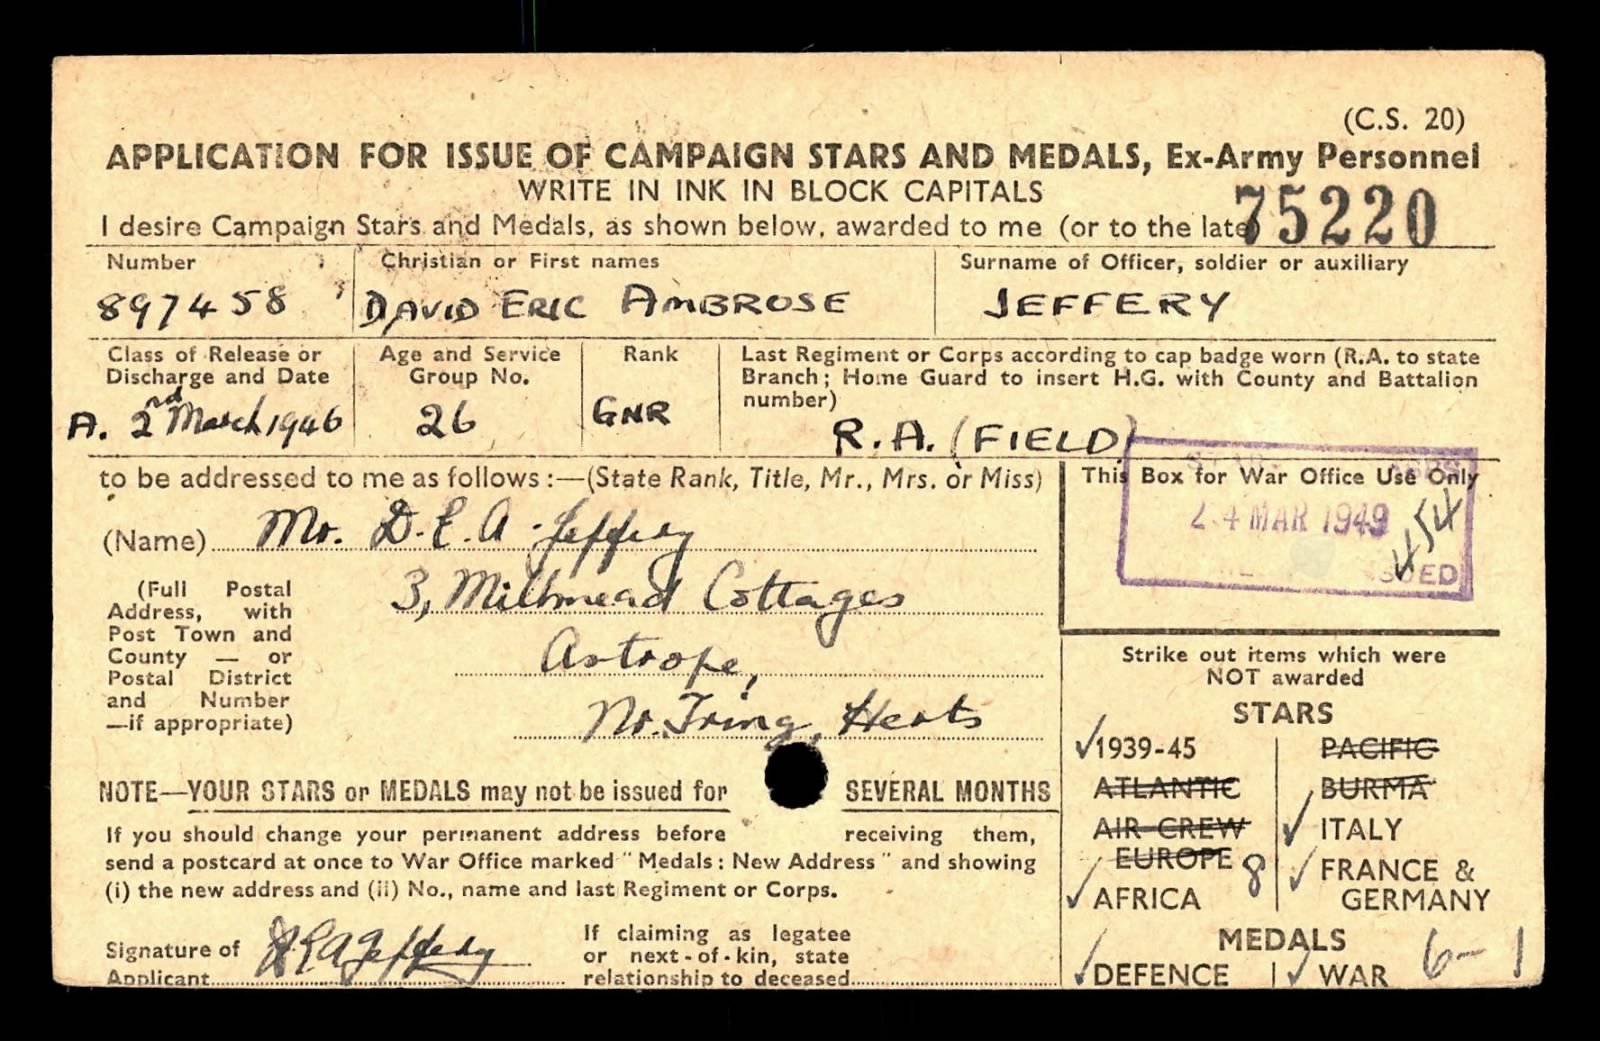 (C.S. 20)
APPLICATION FOR ISSUE OF CAMPAIGN STARS AND MEDALS, Ex-Army Personnel
WRITE IN INK IN BLOCK CAPITALS
75220
I desire Campaign Stars and Medals, as shown below, awarded to me (or to the late)
Number Christian or First names Surname of Officer, soldier or auxiliary
897458 DAVID ERIC AMBROSE JEFFERY
Class of Release or Discharge and Date
A. 2nd March 1946
Age and Service Group No.
26
Rank
GNR
Last Regiment or Corps according to cap badge worn (R.A. to state
Branch; Home Guard to insert H.G. with County and Battalion
number)
R.A. (FIELD)
to be addressed to me as follows:—(State Rank, Title, Mr., Mrs. or Miss)
(Name) Mr. D.E.A. Jeffery
(Full Postal
Address, with
Post Town and
County — or
Postal District
and Number
—if appropriate)
3, Millmead Cottages
Astrope,
Nr. Tring, Herts
This Box for War Office Use Only
24 MAR 1949
454
ISSUED
NOTE—YOUR STARS or MEDALS may not be issued for SEVERAL MONTHS
If you should change your permanent address before receiving them,
send a postcard at once to War Office marked "Medals: New Address" and showing
(i) the new address and (ii) No., name and last Regiment or Corps.
Signature of
Applicant
DEA Jeffery
If claiming as legatee
or next-of-kin, state
relationship to deceased
Strike out items which were
NOT awarded
STARS
✓1939-45 PACIFIC
ATLANTIC BURMA
AIR CREW ✓ ITALY
EUROPE 8 ✓ FRANCE &
✓ AFRICA GERMANY
MEDALS
✓ DEFENCE ✓ WAR 6-1